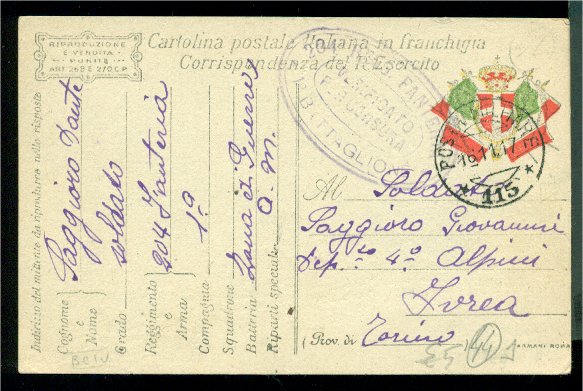 RIPRODUZIONE
E VENDITA
PUNITE
ART. 268 E 270 C.P.
Cartolina postale Italiana in franchigia
Corrispondenza del R. Esercito
VERIFICATO
CENSURA
BATTAGLIONE
POSTA MILITARE
19.11.17
115
Indirizzo del mittente da riprodurre nelle risposte
Cognome e Nome Saggioro Dante
Grado soldato
Reggimento e Arma 204 Fanteria
Compagnia 1a
Squadrone
Batteria Zona di Guerra
Riparti speciali O. M.
Al Soldato
Saggioro Giovanni
Dep.to 4o Alpini
Ivrea
(Prov. di Torino)
ARMANI ROMA